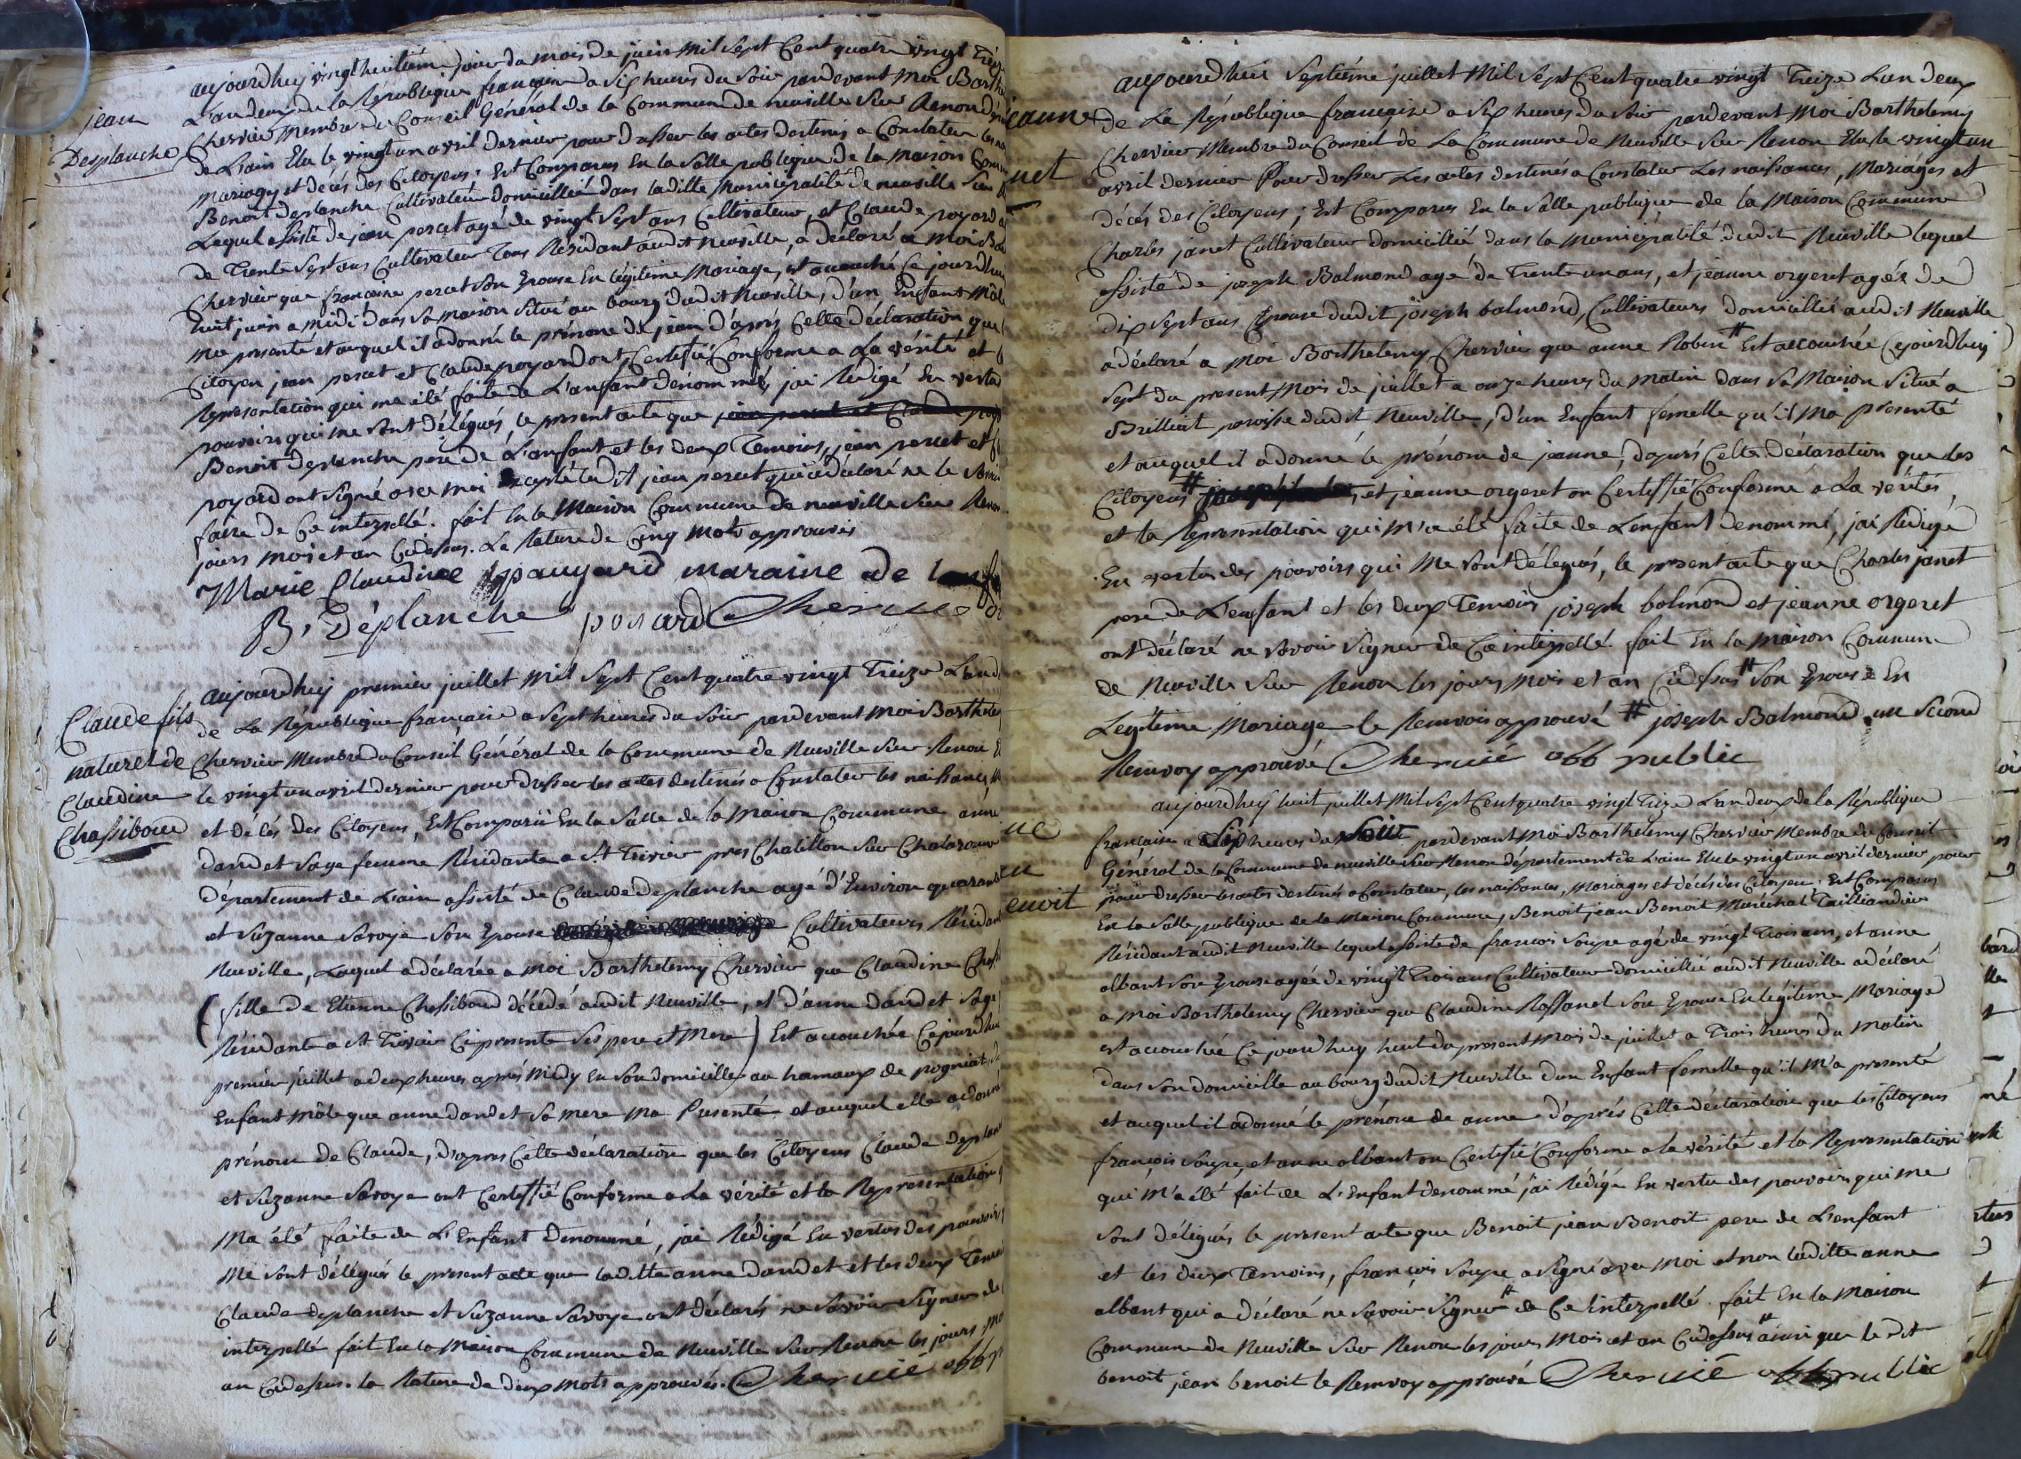 jean
Desplanche
aujourdhuy vingt huitiéme jour du mois de juin mil sept Cent quatre vingt Treiz
L'an deux de la République françaine a six heures du soir pardevant moi Barthe
Chervier Membre du Conseil Général de la Commune de neuville sur Renon dép
de L'ain Elu le vingt un avril dernier pour dresser les actes destinés a Constater les na
mariages et décés des Citoyens. Est Comparus En la Salle publique de la maison Com
Benoit deplanche Cultivateur domicillié dans laditte Municipalité de neuville sur
Lequel assisté de jean percet agé de vingt sept ans Cultivateur, et Claude poyard a
de Trente sept ans Cultivateur Tous Résidant audit neuville, a déclaré a Moi Ba
Chervier que francoise percet son Epouse En légitime Mariage, est accouché Ce jourdhuy
huit juin a midi dans sa maison Situé au bourg dudit Neuville, d'un Enfant Mâle
ma presenté et auquel il a donné le prénom de jean d'après Cette déclaration que
Citoyen jean percet et Claude poyard ont Certiffié Conforme a La vérité et
Representation qui ma été faite de L'anfant dénommé, jai Rédigé En vertu
pouvoirs qui me sont délégués, le present acte que jean percet et Claude poy
Benoit deplanche pere de L'anfant et les deux Temoins, jean percet et
poyard ont signé avec moi Excepté ledit jean percet qui a déclaré ne le savoir
faire de Ce interpellé. fait En la Maison Commune de neuville sur Renon
jours mois et an Cidessus. La Rature de Cinq mots approuvés
Marie Claudine pauyard maraine de lenfan
B. Déplanche poyard Chervié
Claude fils
naturel de
Claudine
Chassiboud
aujourdhuy premier juillet mil sept Cent quatre vingt Treize L'and
de La République francaise a sept heures du soir pardevant moi Barthelem
Chervier Membre du Conseil Général de la Commune de Neuville sur Renon E
le vingt un avril dernier pour dresser les actes destinés a Constater les naissances, M
et décés des Citoyens, Est Comparüe En la Salle de la Maison Commune anne
dandet Sage femme Résidante a St Trivier près Chatillon sur Chalaronne
département de L'ain assisté de Claude Deplanche agé d'Environ quarante
et Suzanne Savoye son Epouse Cultivateurs Résidant
Neuville, Laquel a déclarée a moi Barthelemy Chervier que Claudine Chassi
(fille de Etienne Chassiboud décédé audit Neuville, et d'anne dandet Sage
Résidante a St Trivier Cy presente Ses pere et Mere) Est accouchée Cejourdhuy
premier juillet a deux heures après Midy En son domicille au hamaux de pogniat, d
Enfant Mâle que anne dandet sa mere Ma Presenté et auquel elle a donné
prénom de Claude, d'après Cette déclaration que les Citoyens Claude deplan
et Suzanne Savoye ont Certiffié Conforme a La vérité et la Representation
Ma été faite de L'Enfant Dénommé, jai Rédigé En vertus des pouvoirs
Me sont délégués le present acte que laditte anne dandet et les deux Temoi
Claude deplanche et Suzanne Savoye ont déclarés ne Savoir Signer de
interpellé fait En la Maison Commune de Neuville sur Renon les jours mo
an Cidessus. la Rature de deux mots approuvés. Chervié off p
jeanne
net
aujourdhui Septiéme juillet Mil Sept Cent quatre vingt Treize L'an deux
de La République francaise a Six heures du soir pardevant Moi Barthelemy
Chervier Membre du Conseil de La Commune de Neuville sur Renon Elu le vingt un
avril dernier Pour dresser Les actes destinés a Constater Les naissances, Mariages et
décés des Citoyens; Est Comparus En la Salle publique de la Maison Commune
Charles janet Cultivateur domicillié dans la Municipalité dudit Neuville lequel
assisté de joseph Balmond agé de Trente un ans, et jeanne orgeret agée de
dix sept ans Epouse dudit joseph balmond, Cultivateurs domicilliés audit Neuville
a déclaré a Moi Barthelemy Chervier que anne Robin # Est accouchée Cejourdhuy
sept du present Mois de juillet a onze heures du matin dans sa Maison Situé a
Brilliat paroisse dudit Neuville, d'un Enfant femelle qu'il Ma presenté
et auquel il a donné le prénom de jeanne, dapprès Cette Déclaration que les
Citoyens # et jeanne orgeret on Certiffié Conforme a La vérités
et la Representation qui m'a été faite de L'enfant dénommé, jai Rédigé
En vertus des pouvoirs qui Me sont délegués, le present acte que Charles janet
pere de L'enfant et les deux Temoins joseph balmond et jeanne orgeret
ont déclaré ne savoir Signer de Ce interpellé fait En la Maison Commune
de Neuville sur Renon les jours Mois et an Cidessus # Son Epouse En
Legitime Mariage le Renvois approuvé # joseph Balmond un Second
Renvoy approuvé Chervié off public
ne
n
enoit
aujourdhuy huit juillet Mil Sept Cent quatre vingt Treize L'an deux de la République
françaine a Six heures du Soir pardevant Moi Barthelemy Chervier Membre du Conseil
Général de la Commune de neuville sur Renon département de L'ain Elu le vingt un avril dernier pour
pour dresser les actes destinés a Constater, les naissances, Mariages et décés des Citoyens. Est Comparus
En la Salle publique de la Maison Commune, Benoit jean Benoit Maréchal Tailliandier
Résidant audit Neuville lequel assisté de francois Soupe agé de vingt Trois ans, et anne
albant son Epouse agée de vingt Trois ans Cultivateur domicillié audit Neuville a déclaré
a Moi Barthelemy Chervier que Claudine Raffanel son Epouse En légitime Mariage
est accouchée Ce jourdhuy huit du present Mois de juillet a Trois heures du Matin
dans son domicille au bourg dudit Neuville dun Enfant femelle qu'il M'a presenté
et auquel il a donné le prénom de anne d'après Cette déclaration que les Citoyens
françois Soupe, et anne albant on Certiffié Conforme a la vérité et la Representation
qui M'a été fait de L'Enfant denommé j'ai Rédigé En vertu des pouvoirs qui me
sont délégués le present acte que Benoit jean Benoit pere de L'enfant
et les deux Temoins, françois Soupe a signé avec Moi et non laditte anne
albant qui a déclaré ne Savoir Signer # de Ce Interpellé fait En la Maison
Commune de Neuville sur Renon les jour Mois et an Cidessus # ainsi que le dit
benoit jean benoit le Renvoy approuvé Chervié off public